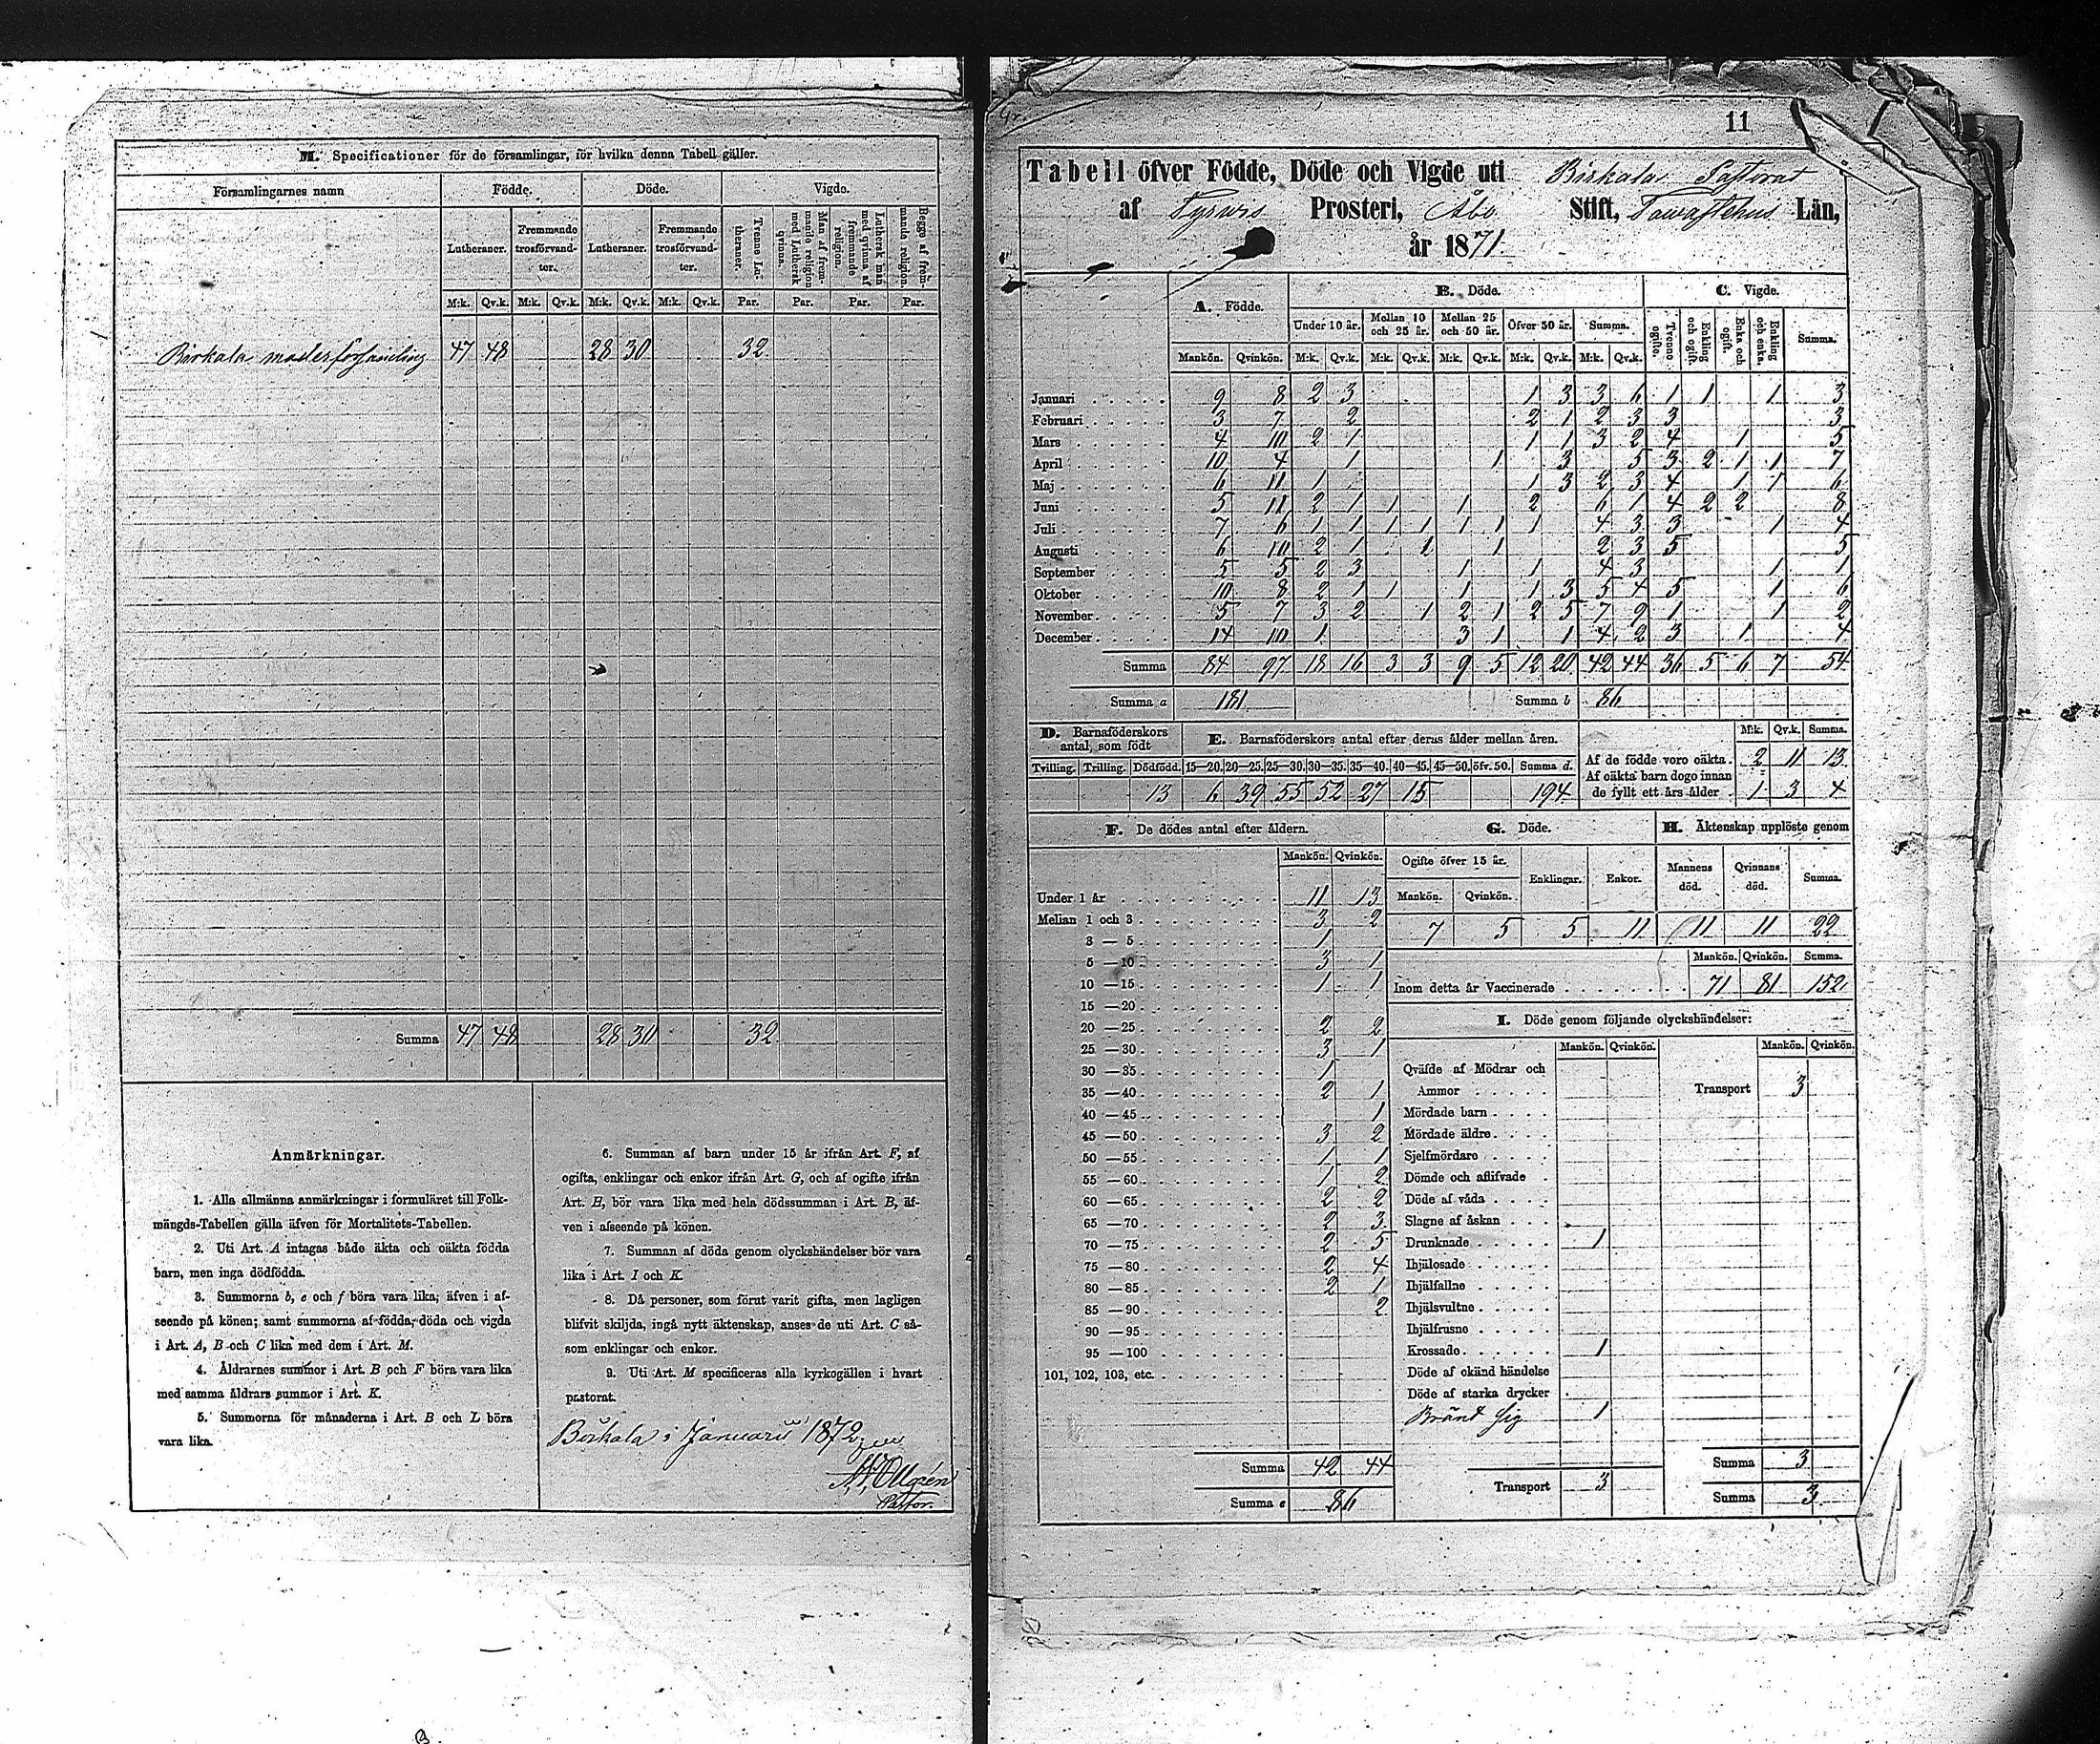 M. Specificationer för de församlingar, för hvilka denna Tabell gäller.
Församlingarnes namn Födde. Döde. Vigde.
Lutheraner. Fremmande trosförvandter. Lutheraner. Fremmande trosförvandter. Trenne Lutheraner. Man af fremmande religion med Luthersk qvinna. Luthersk man med qvinna af fremmande religion. Begge af fremmande religion.
M:k. Qv.k. M:k. Qv.k. M:k. Qv.k. M:k. Qv.k. Par. Par. Par. Par.
Birkala moderförsamling 47 48 28 30 32
Summa 47 48 28 30 32
Anmärkningar.
1. Alla allmänna anmärkningar i formuläret till Folk-
mängds-Tabellen gälla äfven för Mortalitets-Tabellen.
2. Uti Art. A intagas både äkta och oäkta födda
barn, men inga dödfödda.
3. Summorna b, e och f böra vara lika; äfven i af-
seende på könen; samt summorna af födda, döda och vigda
i Art. A, B och C lika med dem i Art. M.
4. Åldrarnes summor i Art. B och F böra vara lika
med samma åldrars summor i Art. K.
5. Summorna för månaderna i Art. B och L böra
vara lika.
6. Summan af barn under 15 år ifrån Art. F, af
ogifta, enklingar och enkor ifrån Art. G, och af ogifte ifrån
Art. H, bör vara lika med hela dödssumman i Art. B, äf-
ven i afseende på könen.
7. Summan af döda genom olyckshändelser bör vara
lika i Art. I och K.
8. Då personer, som förut varit gifta, men lagligen
blifvit skiljda, ingå nytt äktenskap, anses de uti Art. C så-
som enklingar och enkor.
9. Uti Art. M specificeras alla kyrkogällen i hvart
pastorat.
Birkala i Januarii 1872
Pastor.
11
Tabell öfver Födde, Döde och Vigde uti Birkala Pastorat
af Tyrwis Prosteri, Åbo Stift, Tawastehus Län,
år 1871
A. Födde. B. Döde. C. Vigde.
Under 10 år. Mellan 10 och 25 år. Mellan 25 och 50 år. Öfver 50 år. Summa. Tvenne ogifte. Enkling och ogift. Enka och ogift. Enkling och enka. Summa.
Mankön. Qvinkön. M:k. Qv.k. M:k. Qv.k. M:k. Qv.k. M:k. Qv.k. M:k. Qv.k.
Januari 9 8 2 3 1 3 3 6 1 1 1 3
Februari 3 7 2 2 1 2 3 3 3
Mars 4 10 2 1 1 1 3 2 4 1 5
April 10 4 1 1 3 5 3 2 1 1 7
Maj 6 11 1 1 3 2 3 4 1 1 6
Juni 5 11 2 1 1 1 2 6 1 4 2 2 8
Juli 7 6 1 1 1 1 1 1 1 4 3 3 1 4
Augusti 6 10 2 1 1 1 2 3 5 5
September 5 5 2 3 1 1 4 3 1 1
Oktober 10 8 2 1 1 1 1 3 5 4 5 1 6
November 5 7 3 2 1 2 1 2 5 7 9 1 1 2
December 14 10 1 3 1 1 4 2 3 1 4
Summa 84 97 18 16 3 3 9 5 12 20 42 44 36 5 6 7 54
Summa a 181 Summa b 86
D. Barnaföderskors antal, som födt
Tvilling. Trilling. Dödfödd.
13
E. Barnaföderskors antal efter deras ålder mellan åren.
15—20. 20—25. 25—30. 30—35. 35—40. 40—45. 45—50. öfv. 50. Summa d.
6 39 55 52 27 15 194
M:k. Qv.k. Summa.
Af de födde voro oäkta. 2 11 13
Af oäkta barn dogo innan
de fyllt ett års ålder 1 3 4
F. De dödes antal efter åldern.
Mankön. Qvinkön.
Under 1 år 11 13
Mellan 1 och 3 3 2
3 — 5 1
5 — 10 3 1
10 — 15 1 1
15 — 20
20 — 25 2 2
25 — 30 3 1
30 — 35 1
35 — 40 2 1
40 — 45 1
45 — 50 3 2
50 — 55 1 1
55 — 60 1 2
60 — 65 2 2
65 — 70 2 3
70 — 75 2 5
75 — 80 2 4
80 — 85 2 1
85 — 90 2
90 — 95
95 — 100
101, 102, 103, etc.
Summa 42 44
Summa e 86
G. Döde.
Ogifte öfver 15 år. Enklingar. Enkor.
Mankön. Qvinkön.
7 5 5 11
H. Äktenskap upplöste genom
Mannens död. Qvinnans död. Summa.
11 11 22
Mankön. Qvinkön. Summa.
Inom detta år Vaccinerade 71 81 152
I. Döde genom följande olyckshändelser:
Mankön. Qvinkön. Mankön. Qvinkön.
Qväfde af Mödrar och
Ammor
Mördade barn
Mördade äldre
Sjelfmördare
Dömde och aflifvade
Döde af våda
Slagne af åskan
Drunknade 1
Ihjälosade
Ihjälfallne
Ihjälsvultne
Ihjälfrusne
Krossade 1
Döde af okänd händelse
Döde af starka drycker
Bränt sig 1
Transport 3
Transport 3
Summa 3
Summa 3